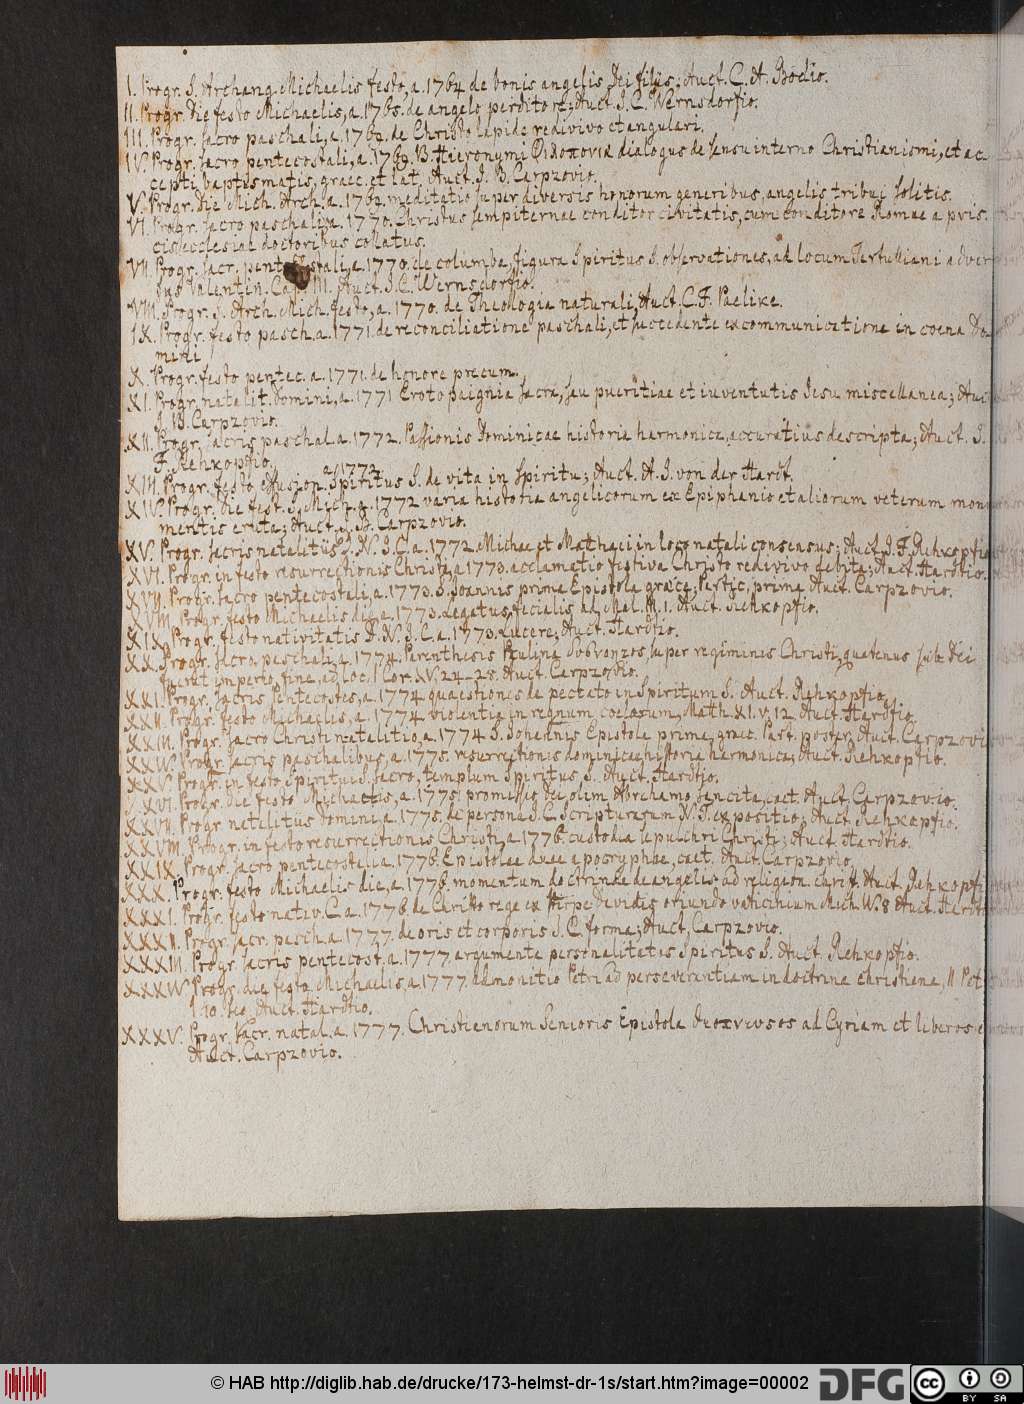 I. Progr. S. Archang. Michaelis festo, a. 1764 de bonis angelis Dei filiis; Auct. C. A. Bodio.
II. Progr. Die festo Michaelis, a. 1765. de angelo perditore; Auct. I. C. Wernsdorfio.
III. Progr. sacro paschali, a. 1769. de Christo lapide redivivo et angulari.
IV. Progr. sacro pentecostali, a. 1769. B. Hieronymi dialogus de sensu interno Christianismi, et ac-
cepti baptismatis, graec. et lat. Auct. I. B. Carpzovio.
V. Progr. die Mich. Arch. a. 1769. meditatio super diversis honorum generibus, angelis tribui solitis.
VI. Progr. sacro paschali, a. 1770. Christus sempiternae conditor civitatis, cum conditore Romae a pris-
cis ecclesiae doctoribus collatus.
VII. Progr. sacr. pentecostali, a. 1770. de columba, figura Spiritus S. observationes, ad locum Tertulliani adver-
sus Valentin. Cap. III. Auct. I. C. Wernsdorfio.
VIII. Progr. S. Arch. Mich. festo, a. 1770. de Theologia naturali, Auct. C. F. Paelike.
IX. Progr. festo pasch. a. 1771. de reconciliatione paschali, et succedente excommunicatione in coena Do-
mini
X. Progr. festo pentec. a. 1771. de honore precum.
XI. Progr. natalit. Domini, a. 1771 Erotopaignia sacra, seu pueritiae et iuventutis Iesu miscellanea; Auct.
I. B. Carpzovio.
XII. Progr. sacris paschal. a. 1772. Passionis Dominicae historia harmonica, accuratius descripta; Auct. I.
F. Rehkopfio.
XIII. Progr. festo effusion. Spiritus S. a. 1772. de vita in Spiritu; Auct. A. I. von der Hardt.
XIV. Progr. die fest. S. Mich. a. 1772 varia historia angelicorum ex Epiphanio et aliorum veterum monu-
mentis eruta; Auct. I. B. Carpzovio.
XV. Progr. sacris natalitiis I. N. I. C. a. 1772. Michae et Matthaei in loco natali consensus; Auct. I. F. Rehkopfio
XVI. Progr. in festo resurrectionis Christi, a. 1773. acclamatio festiva Christo redivivo debita; Auct. Hardtio.
XVII. Progr. sacro pentecostali, a. 1773. S. Joannis prima Epistola graece; Partic. prima Auct. Carpzovio.
XVIII. Progr. festo Michaelis die, a. 1773. Legatus fecialis ad Mal. III. 1. Auct. Rehkopfio.
XIX. Progr. festo nativitatis D. N. I. C. a. 1773. Lucere; Auct. Hardtio.
XX. Progr. sacro paschali, a. 1774. Parenthesis Paulina super regiminis Christi, quatenus sub Dei
fuerit imperio, fine, ad loc. I Cor. XV. 24-25. Auct. Carpzovio.
XXI. Progr. sacris Pentecostes, a. 1774. quaestiones de peccato in Spiritum S. Auct. Rehkopfio.
XXII. Progr. festo Michaelis, a. 1774 violentia in regnum coelorum, Math. XI. v. 12. Auct. Hardtio.
XXIII. Progr. sacro Christi natalitio, a. 1774 S. Johannis Epistola prima, graec. Part. poster. Auct. Carpzovio
XXIV. Progr. sacris paschalibus, a. 1775. resurrectionis dominicae historia harmonica; Auct. Rehkopfio.
XXV. Progr. in festo Spiritui S. sacro, templum Spiritus S. Auct. Hardtio.
XXVI. Progr. die festo Michaelis, a. 1775. promissio Dei olim Abrahamo sancita, caet. Auct. Carpzovio.
XXVII. Progr. natalitiis domini, a. 1775. de persona I. C. Scripturarum N. T. expositio; Auct. Rehkopfio.
XXVIII. Progr. in festo resurrectionis Christi, a. 1776. custodia sepulchri Christi; Auct. Hardtio.
XXIX. Progr. sacro pentecostali, a. 1776. Epistolae duae apocryphae, caet. Auct. Carpzovio.
XXX. Progr. festo Michaelis die, a. 1776. momentum doctrinae de angelis ad religion. christ. Auct. Rehkopfi
XXXI. Progr. festo nativ. C. a. 1776. de Christo rege ex stirpe Davidis oriundo vaticinium Mich. IV. 8 Auct. Hardtio
XXXII. Progr. sacr. pasch. a. 1777. de oris et corporis I. C. forma; Auct. Carpzovio.
XXXIII. Progr. sacris pentecost. a. 1777. argumenta personalitatis Spiritus S. Auct. Rehkopfio.
XXXIV. Progr. die festo Michaelis, a. 1777. admonitio Petri ad perseverantiam in doctrina christiana, II Pet.
I 10. seq. Auct. Hardtio.
XXXV. Progr. sacr. natal. a. 1777. Christianorum Senioris Epistola ad Cyriam et liberos e
Auct. Carpzovio.
© HAB http://diglib.hab.de/drucke/173-helmst-dr-1s/start.htm?image=00002
DFG
cc BY SA